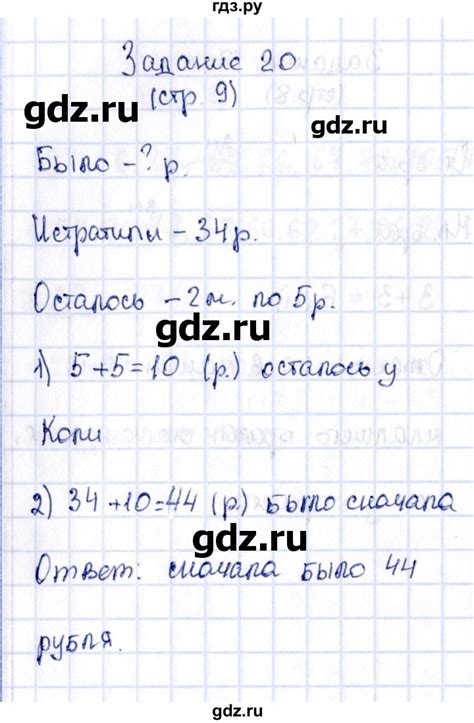 гдз.ру
Задание 20
(стр. 9)
gdz.ru
gdz.ru
Было – ? р.
Истратили – 34 р.
Осталось – 2 м. по 5 р.
gdz.ru
1) 5 + 5 = 10 (р.) осталось у
Коли
2) 34 + 10 = 44 (р.) было сначала
gdz.ru
Ответ: сначала было 44
рубля.
gdz.ru
gdz.ru